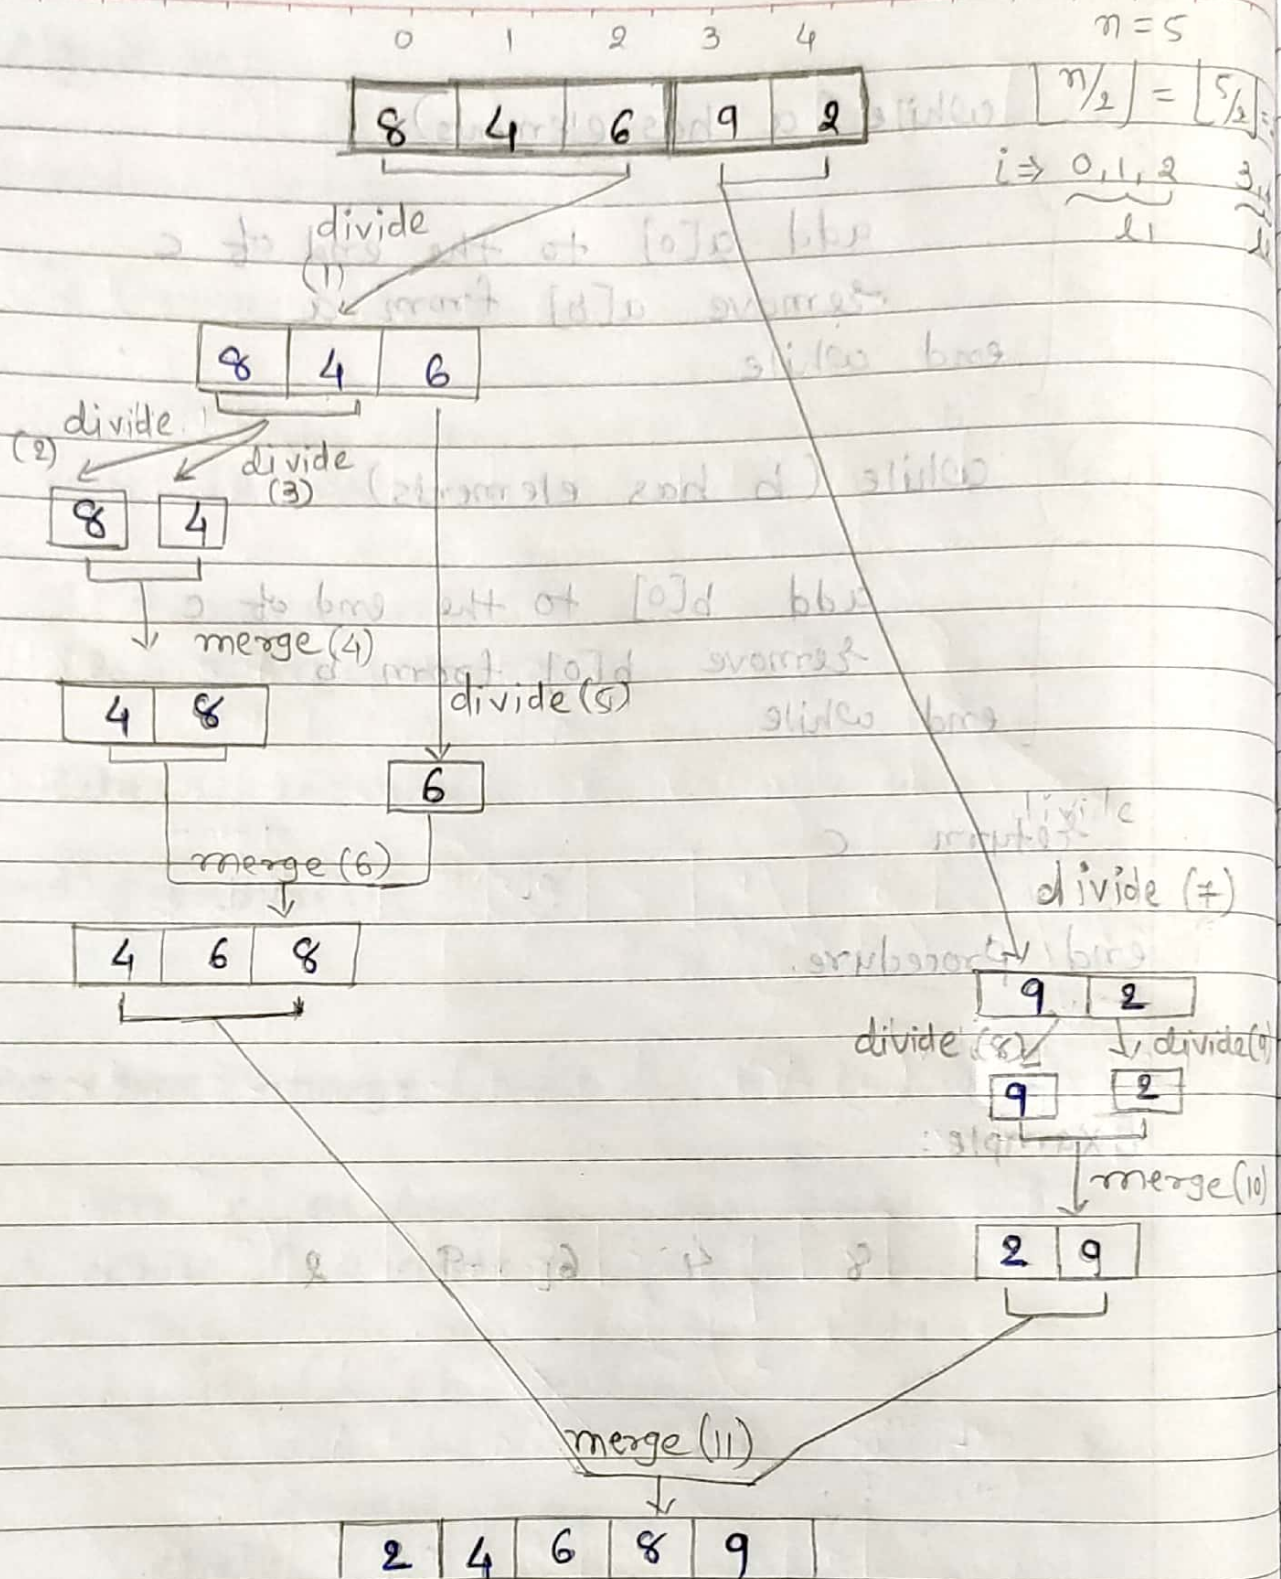 n = 5
0 1 2 3 4
8 4 6 9 2
n/2 = 5/2 =
i ⇒ 0, 1, 2 3,
l1
divide
(1)
8 4 6
divide
(2)
divide
(3)
8 4
merge (4)
4 8
divide (5)
6
merge (6)
4 6 8
divide (7)
9 2
divide (8) divide (9)
9 2
merge (10)
2 9
merge (11)
2 4 6 8 9